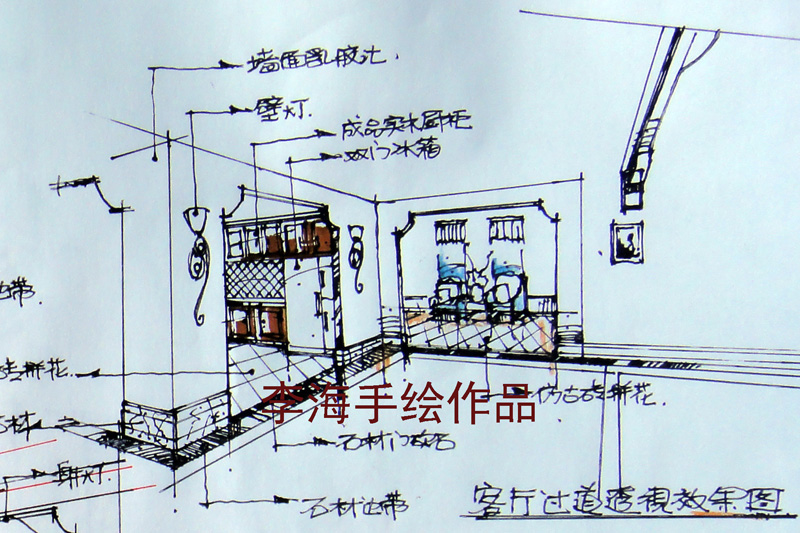 墙面乳胶汁.
壁灯.
成品实木厨柜
双门冰箱
边带.
砖拼花.
李海手绘作品
仿古砖拼花.
石材
石材门坎石
壁灯.
石材边带
客厅过道透視效果图